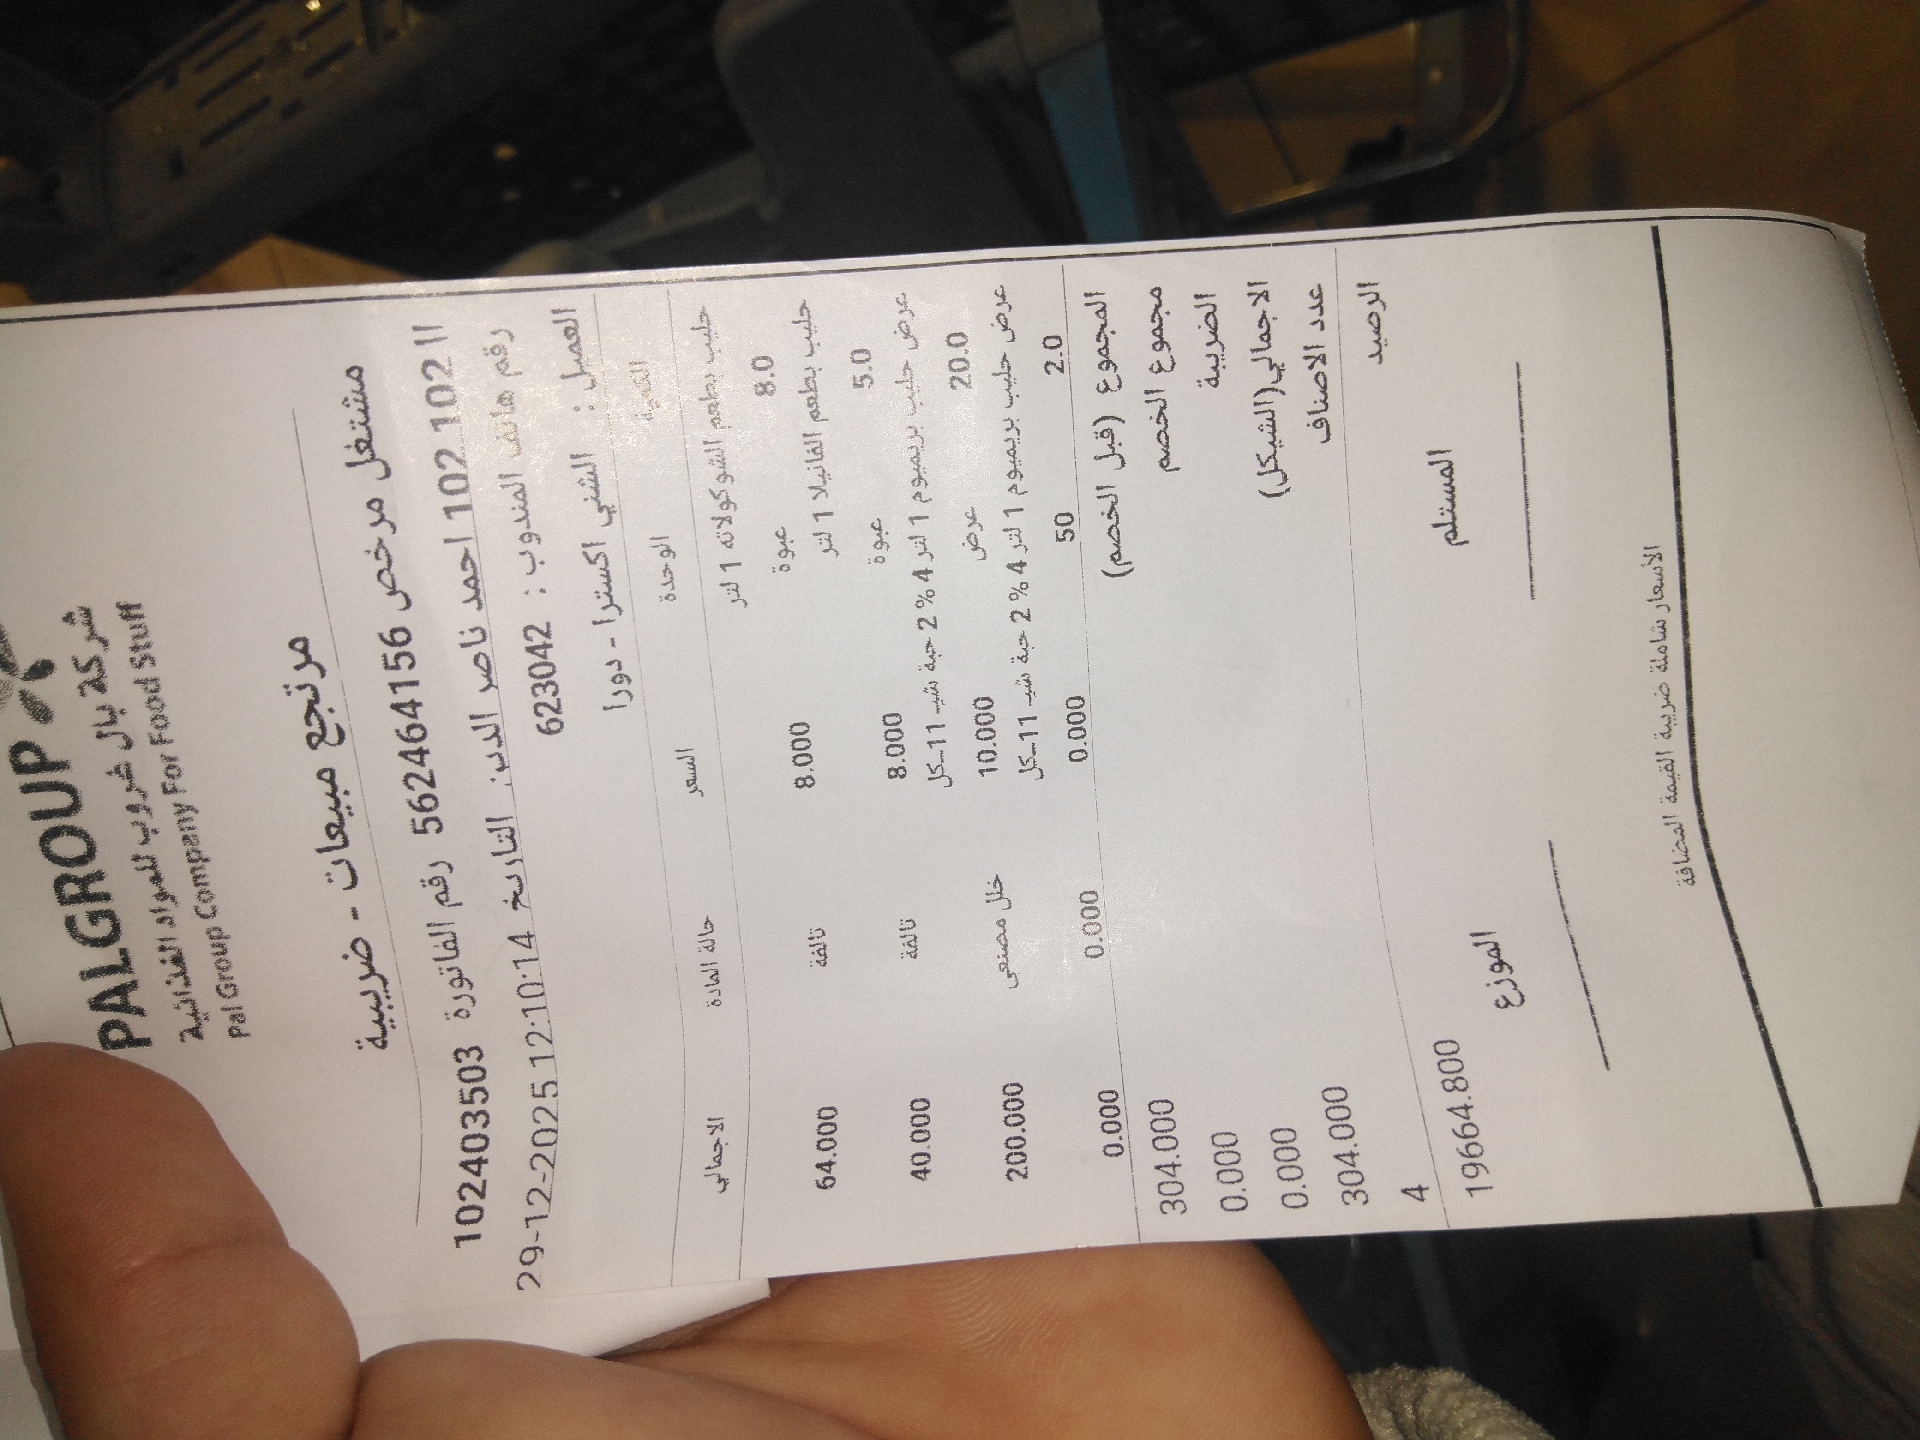 PALGROUP
شركة بال جروب للمواد الغذائية
Pal Group Company For Food Stuff
مرتجع مبيعات - ضريبية
مشتغل مرخص 562464156 رقم الفاتورة 102403503
102 102 احمد ناصر الدين التاريخ 29-12-2025 12:10:14
رقم هاتف المندوب : 623042
العميل : الشني اكسترا - دورا
الكمية الوحدة السعر حالة المادة الاجمالي
حليب بطعم الشوكولاته 1 لتر
8.0 عبوة 8.000 تالفة 64.000
حليب بطعم الفانيلا 1 لتر
5.0 عبوة 8.000 تالفة 40.000
عرض حليب بريميوم 1 لتر 4 % 2 حبة شيـ-11ـكل
20.0 عرض 10.000 خلل مصنعي 200.000
عرض حليب بريميوم 1 لتر 4 % 2 حبة شيـ-11ـكل
2.0 50 0.000 0.000 0.000
المجموع (قبل الخصم) 304.000
مجموع الخصم 0.000
الضريبة 0.000
الاجمالي(الشيكل) 304.000
عدد الاصناف 4
الرصيد 19664.800
المستلم الموزع
الأسعار شاملة ضريبة القيمة المضافة